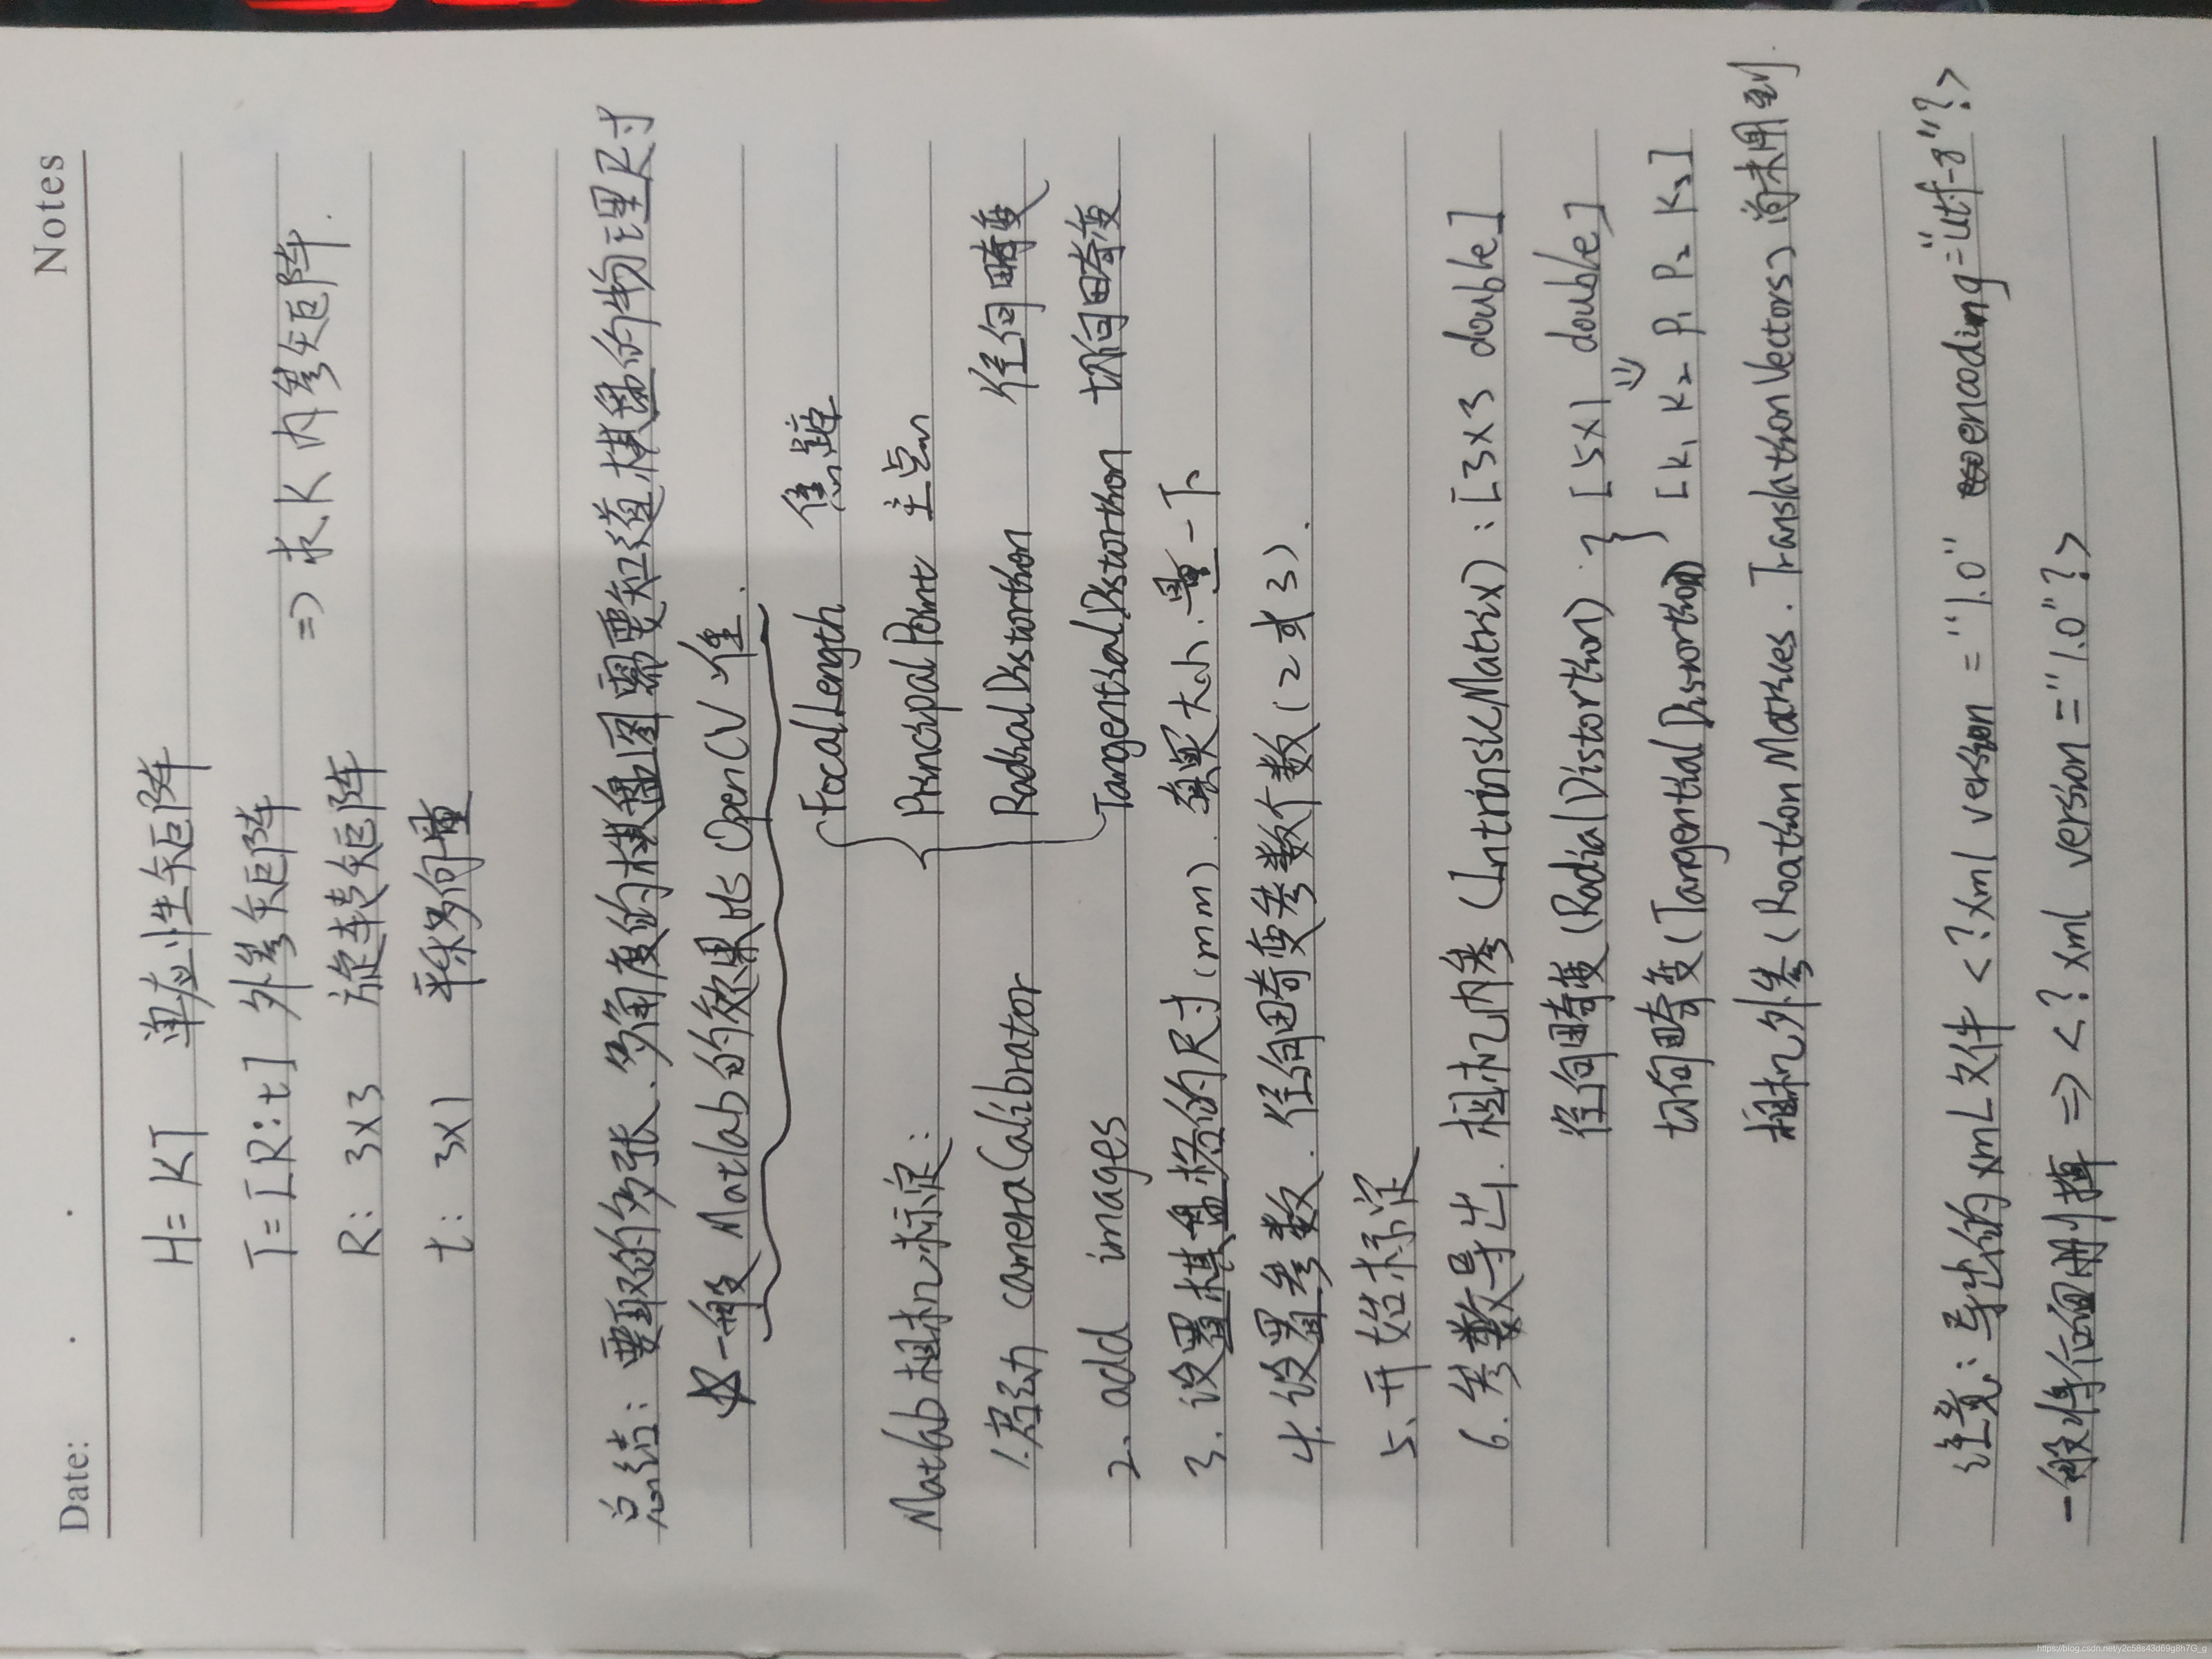 Date:
Notes
H = KT 单应性矩阵
T = [R:t] 外参矩阵
R: 3×3 旋转矩阵 => 求K内参矩阵.
t: 3×1 平移向量
总结: 要取的多张、多角度的棋盘图需要知道棋盘的物理尺寸
☆一般 Matlab的效果比 OpenCV 佳.
FocalLength 焦距
Matlab相机标定: PrincipalPoint 主点
1.启动 cameraCalibrator RadialDistortion 径向畸变
2. add images TangentialDistortion 切向畸变
3. 设置棋盘格的尺寸 (mm). 真实大小.量一下
4. 设置参数. 径向畸变参数个数(2或3).
5. 开始标定
6. 参数导出. 相机内参 (IntrinsicMatrix): [3×3 double]
径向畸变 (RadialDistortion) } [5×1 double]
切向畸变 (TangentialDistortion) [K₁ K₂ P₁ P₂ K₃]
相机外参 (Roation Matrices. TranslationVectors) 尚未用到.
注意: 导出的xmL文件 <?xml version = "1.0" encoding="utf-8"?>
一般将何面删掉 => <?xml version = "1.0"?>
https://blog.csdn.net/y2c58s43d69g8h7G_g